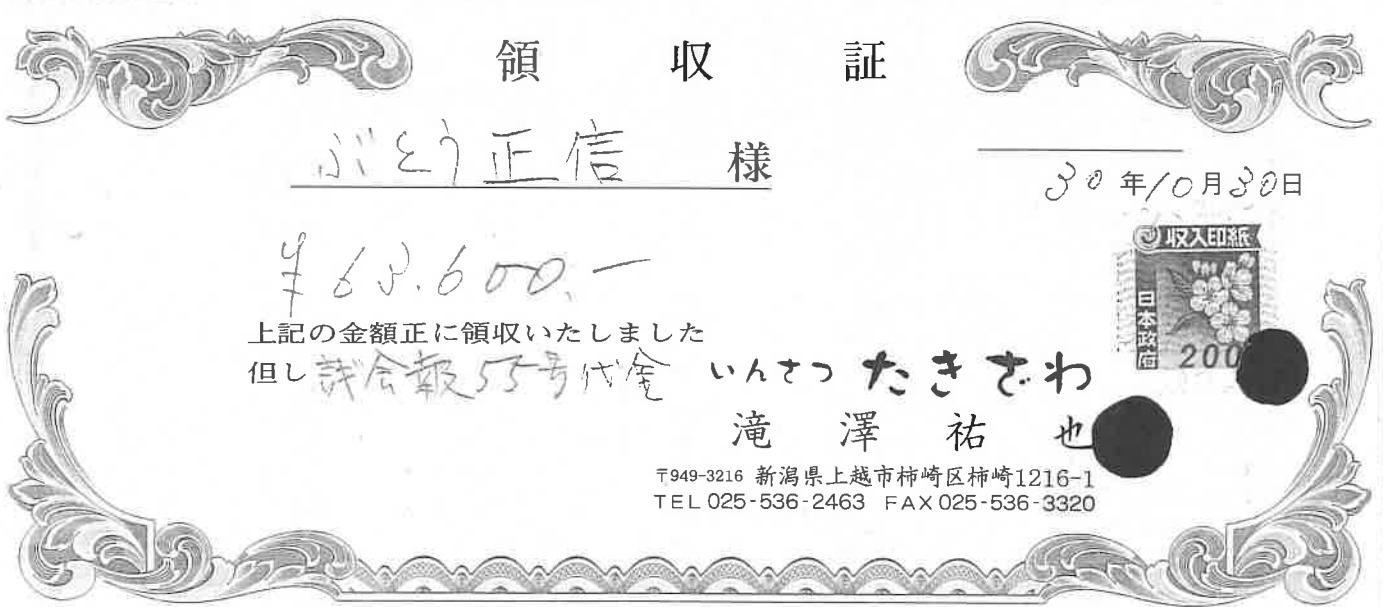 領収証
ぶとう正信 様
30年10月30日
¥63.600.-
収入印紙
日本政府
200
上記の金額正に領収いたしました
但し 議会報55号代金
いんさつ たきざわ
滝澤祐也
〒949-3216 新潟県上越市柿崎区柿崎1216-1
TEL 025-536-2463 FAX 025-536-3320